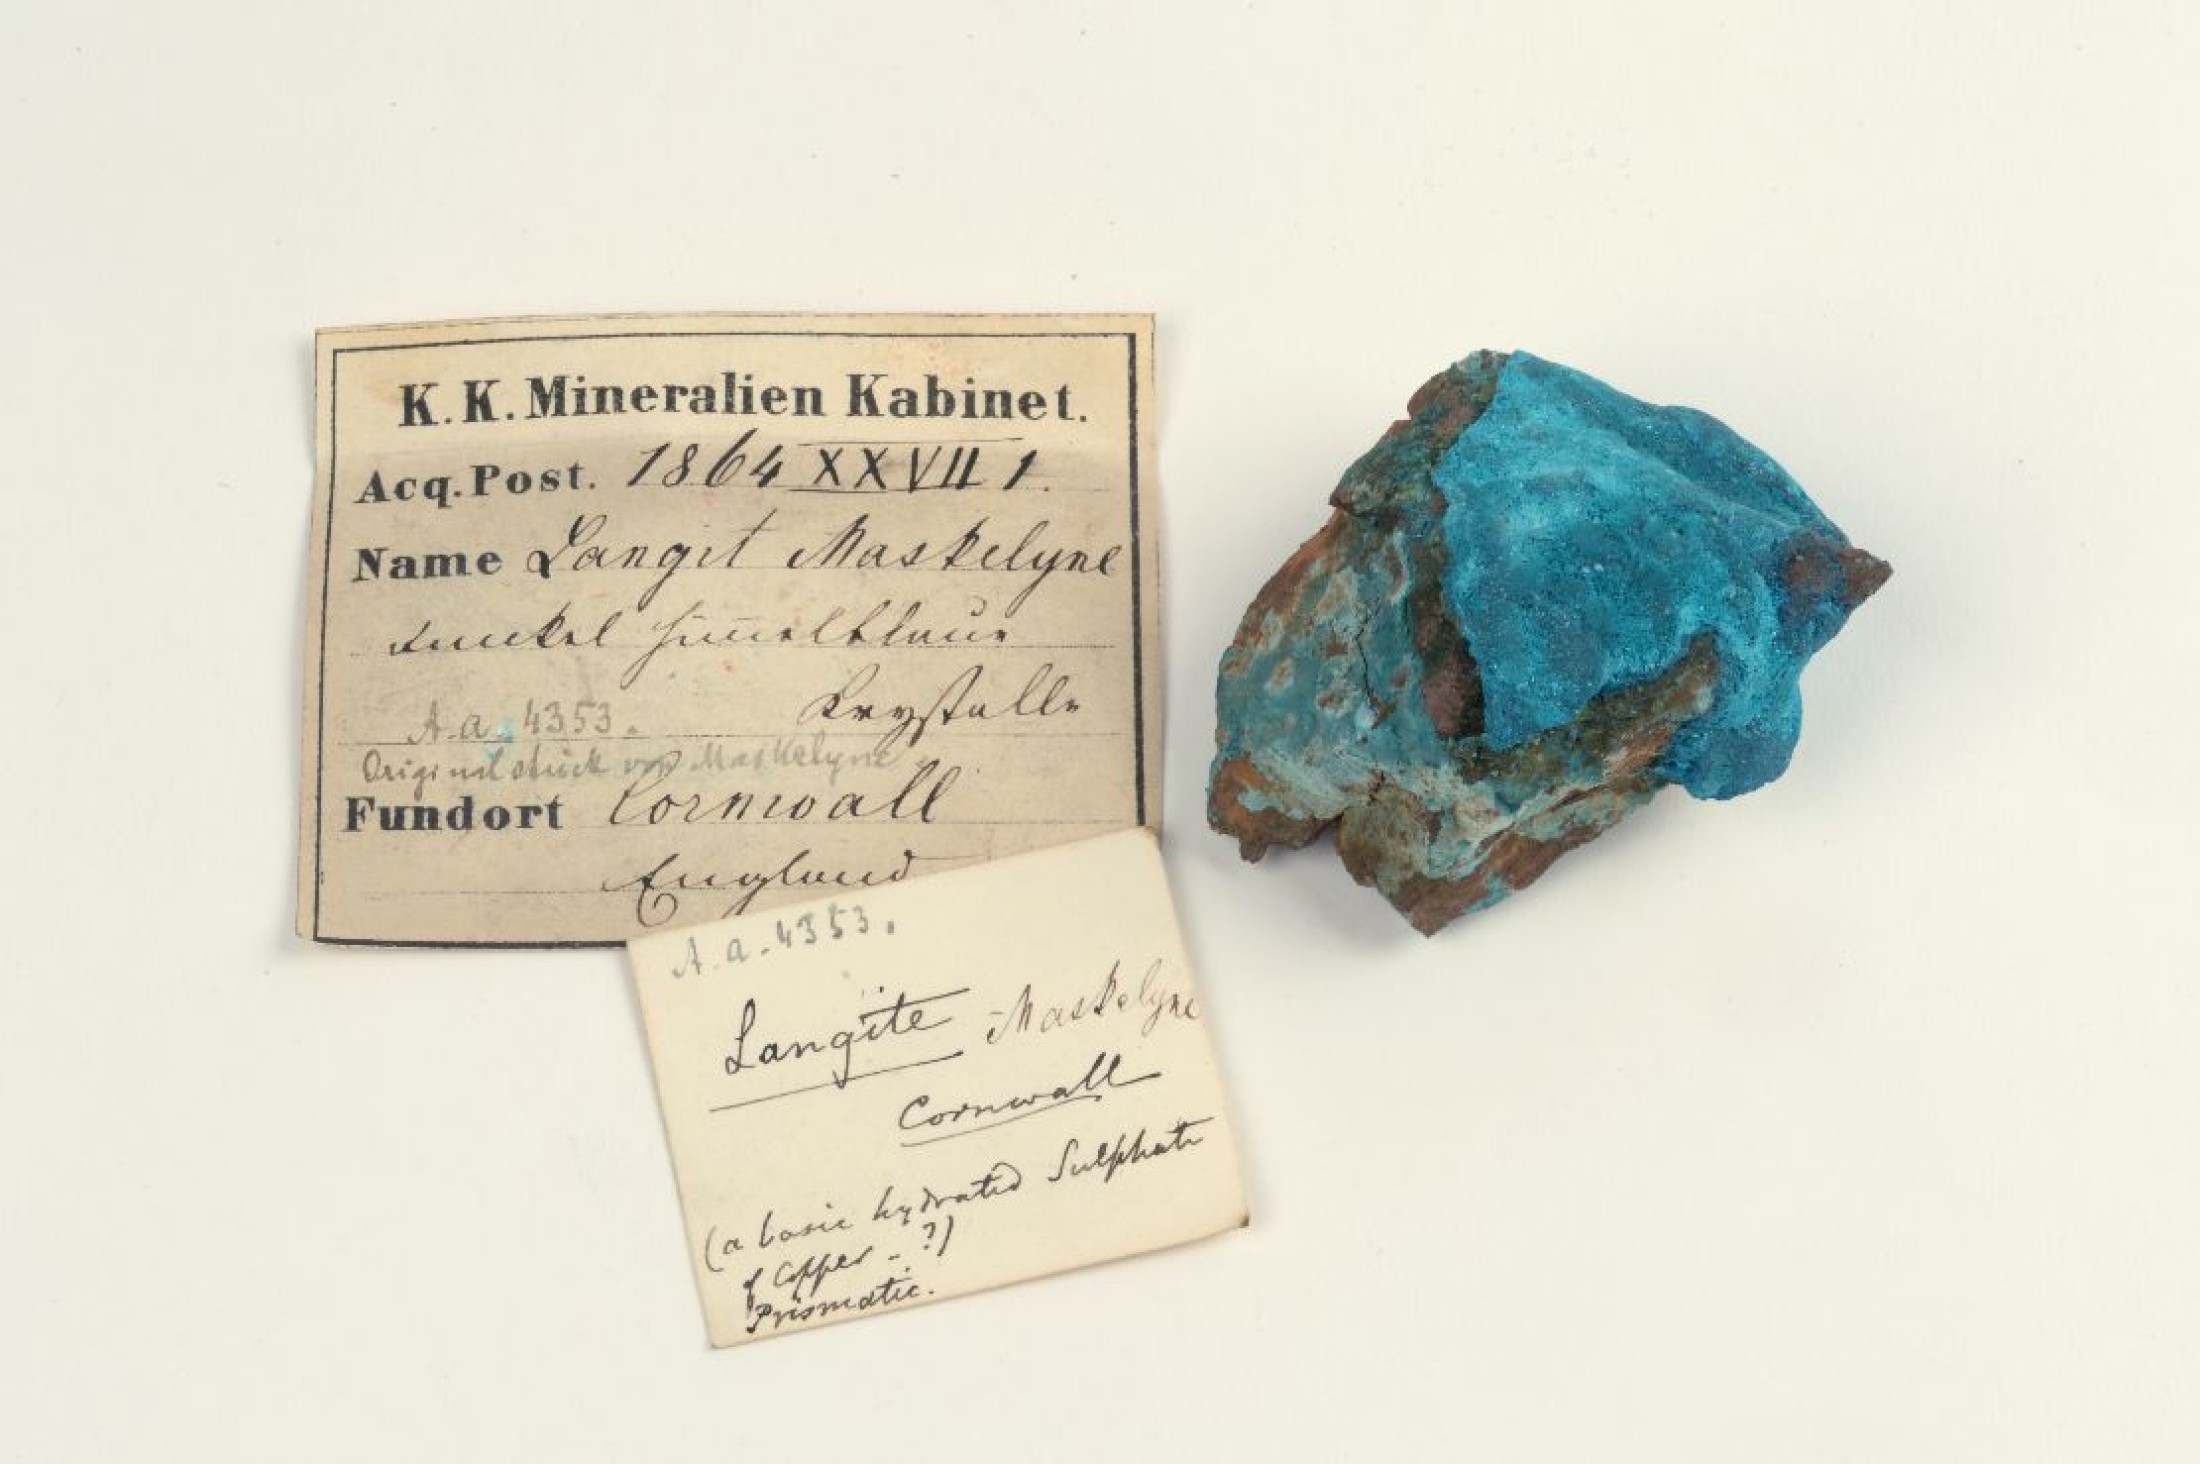 K. K. Mineralien Kabinet.
Acq. Post. 1864 XXVII 1.
Name Langit Maskelyne
dunkel himelblaue
Krystalle
A. a. 4353.
Originalstück von Maskelyne
Fundort Cornwall
England
A. a. 4353.
Langite Maskelyne
Cornwall
(a basic hydrated Sulphate
of Copper - ?)
Prismatic.